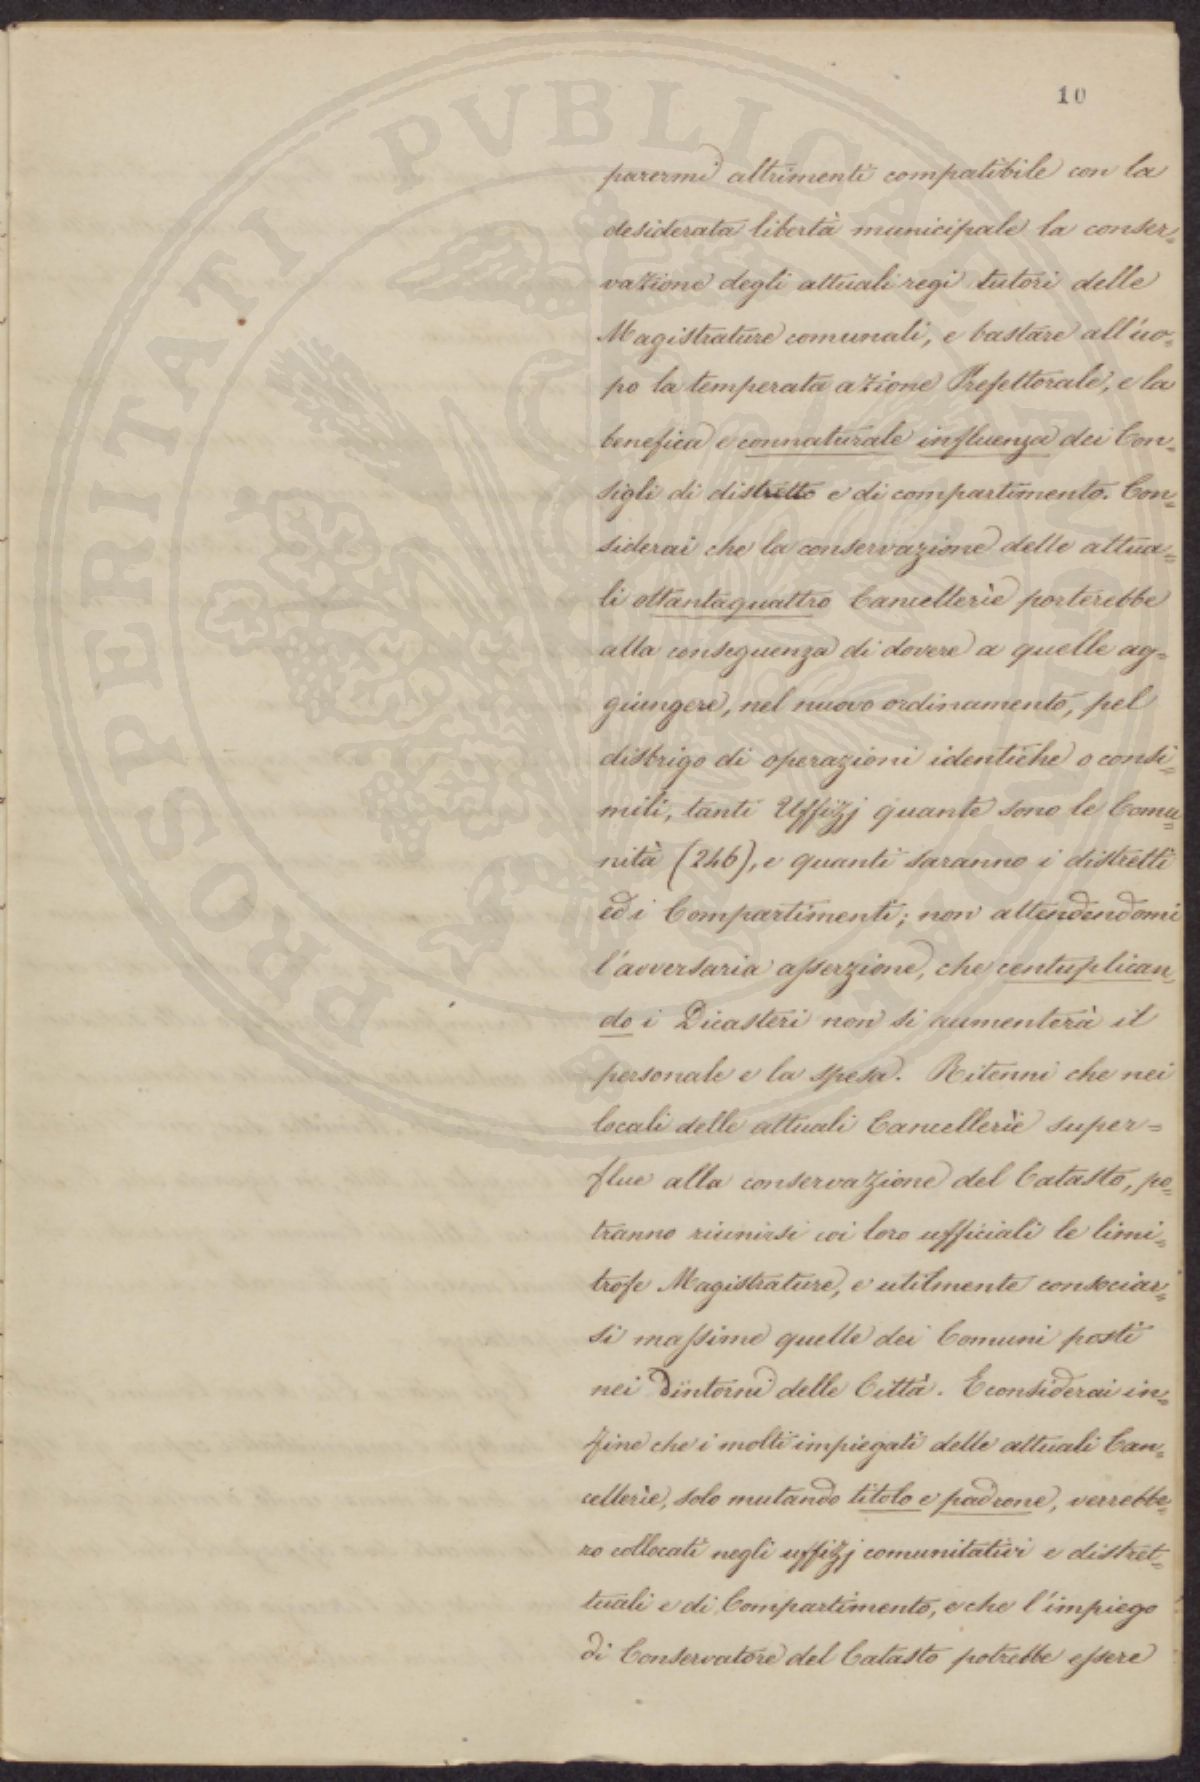 10
parermi altrimenti compatibile con la
desiderata libertà municipale la conser=
vazione degli attuali regi tutori delle
Magistrature comunali, e bastare all'uo=
po la temperata azione Prefettorale, e la
benefica e connaturale influenza dei Con=
sigli di distretto e di compartimento. Con=
siderai che la conservazione delle attua=
li ottantaquattro Cancellerie porterebbe
alla conseguenza di dovere a quelle ag=
giungere, nel nuovo ordinamento, pel
disbrigo di operazioni identiche o consi=
mili, tanti Uffizj quante sono le Comu=
nità (246), e quanti saranno i distretti
ed i Compartimenti; non attendendomi
l'avversaria asserzione, che centuplican=
do i Dicasteri non si aumenterà il
personale e la spesa. Ritenni che nei
locali delle attuali Cancellerie super=
flue alla conservazione del Catasto, po=
tranno riunirsi coi loro ufficiali le limi=
trofe Magistrature, e utilmente consociar=
si massime quelle dei Comuni posti
nei dintorni delle Città. E considerai in=
fine che i molti impiegati delle attuali Can=
cellerie, solo mutando titolo e padrone, verrebbe=
ro collocati negli uffizj comunitativi e distret=
tuali e di Compartimento, e che l'impiego
di Conservatore del Catasto potrebbe essere
PROSPERITATI PVBLICAE